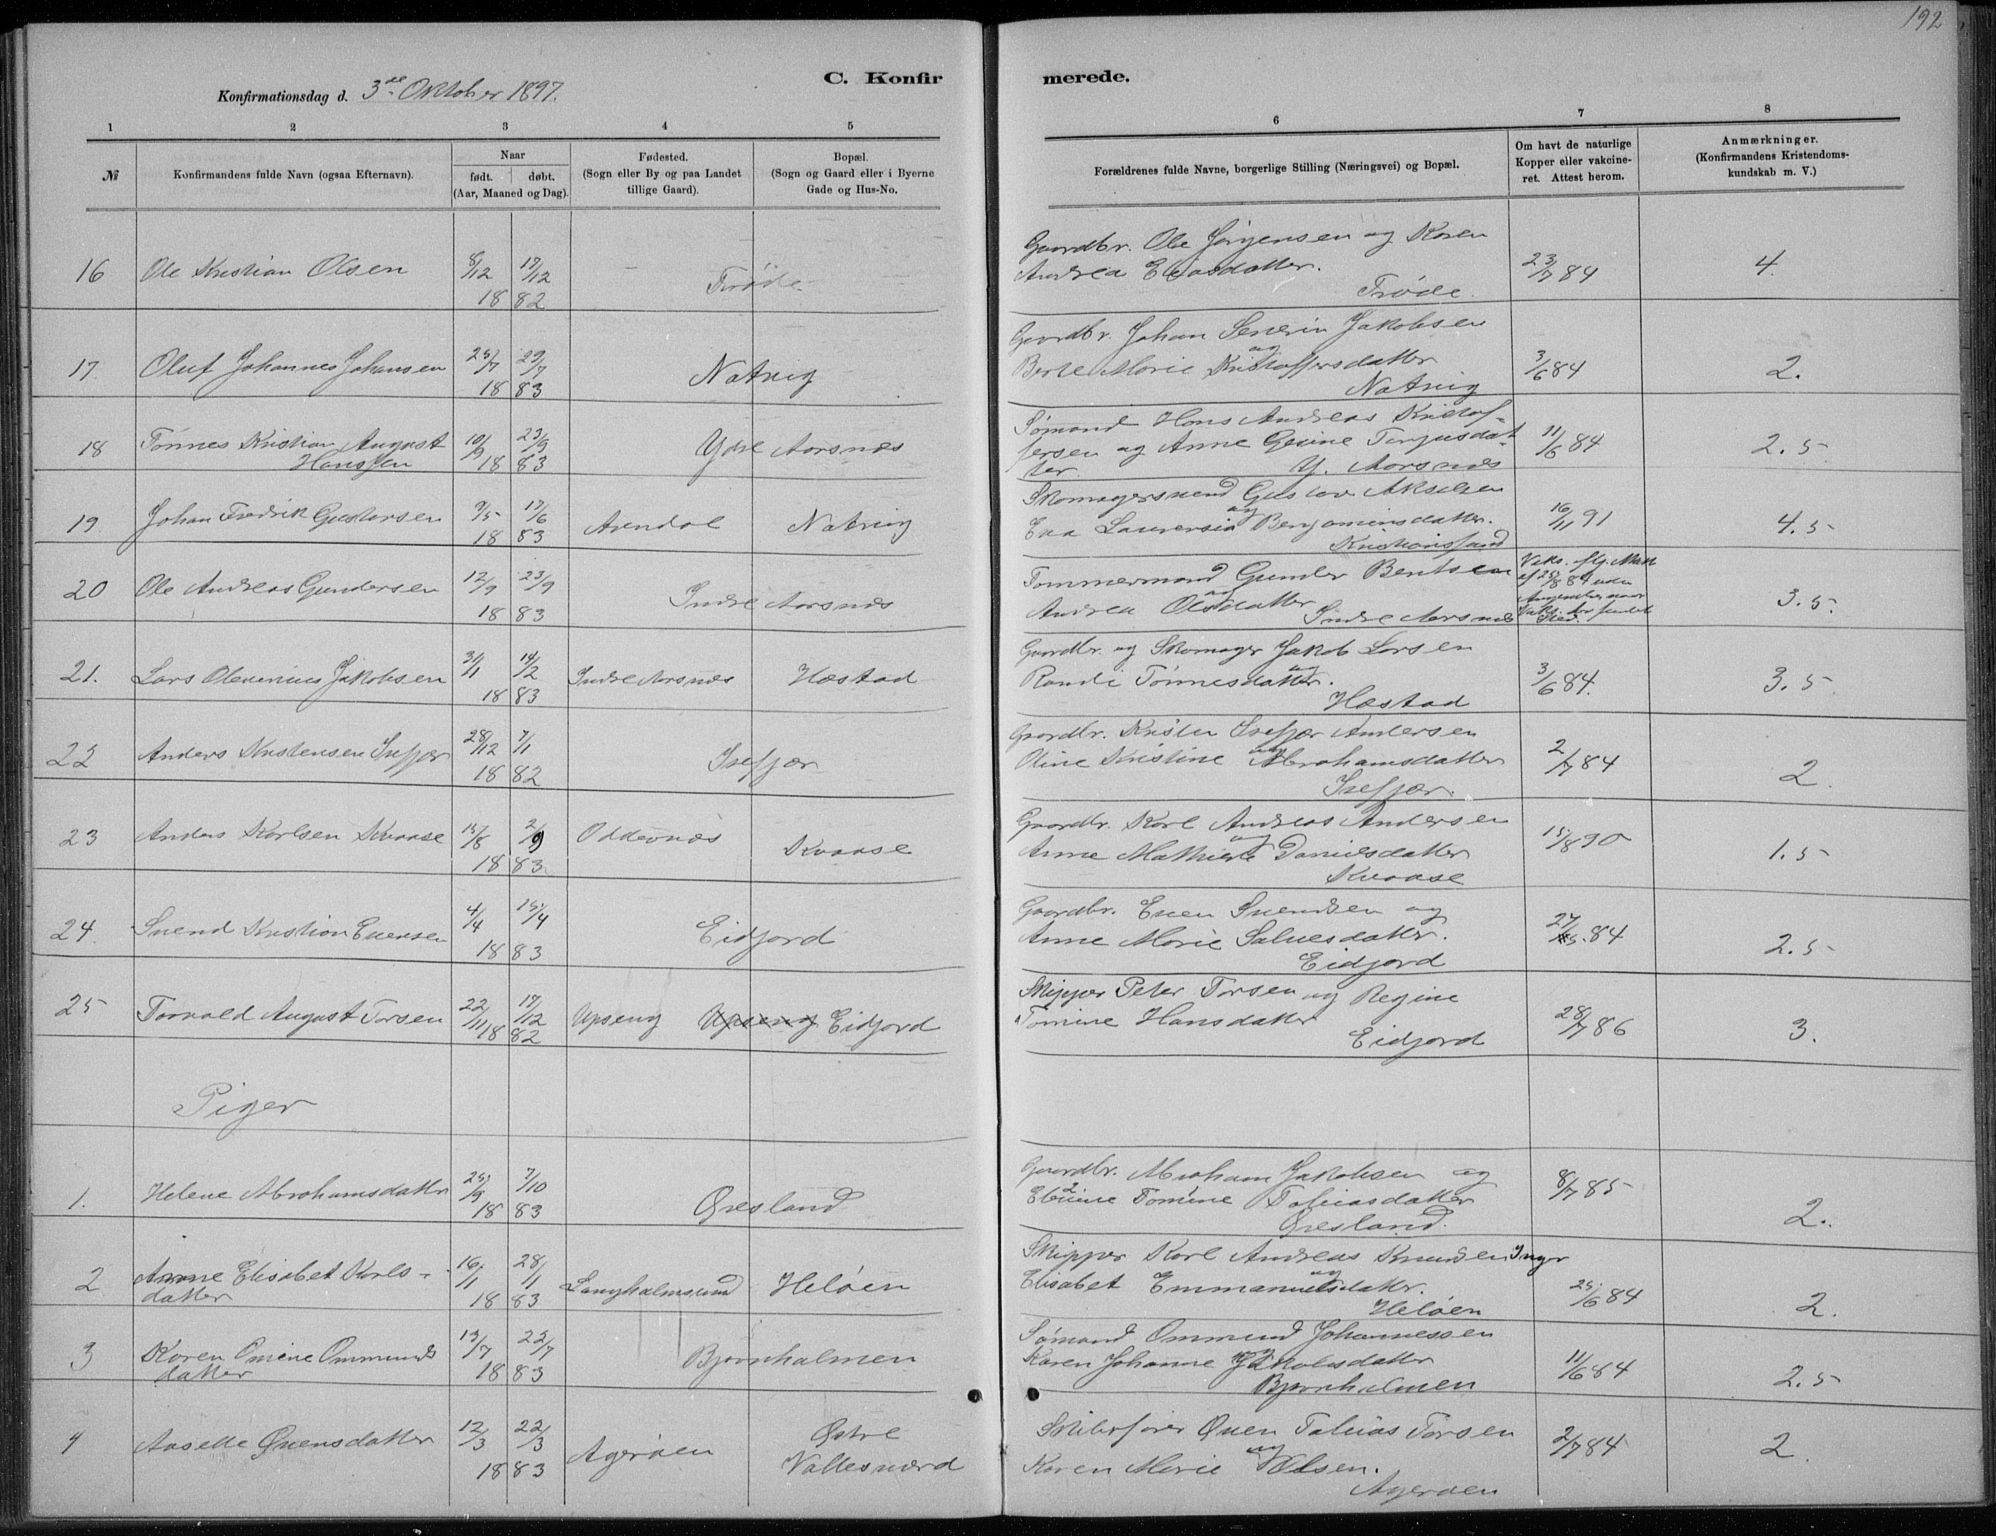 192
C. Konfirmerede.
Konfirmationsdag d. 3die Oktober 1897.
1 2 3 4 5 6 7 8
№
Konfirmandens fulde Navn (ogsaa Efternavn).
Naar
født. døbt.
(Aar, Maaned og Dag).
Fødested.
(Sogn eller By og paa Landet
tillige Gaard).
Bopæl.
(Sogn og Gaard eller i Byerne
Gade og Hus-No.
Forældrenes fulde Navne, borgerlige Stilling (Næringsvei) og Bopæl.
Om havt de naturlige
Kopper eller vakcine-
ret. Attest herom.
Anmærkninger.
(Konfirmandens Kristendoms-
kundskab m. V.)
16 Ole Kristian Olsen 8/12 17/12 1882 Trøde
Gaardbr. Ole Jørgensen og Karen
Andrea Eliasdatter.
Trøde. 23/7 84 4.
17. Oluf Johannes Johansen 25/7 29/7 1883 Natvig
Gaardbr. Johan Severin Jakobsen
og
Berte Marie Kristoffersdatter
Natvig 3/6 84 2.
18 Tønnes Kristian August
Hanssen 10/9 23/9 1883 Ydre Aarsnæs
Sømand Hans Andreas Kristof-
fersen og Anne Gesine Terjusdat-
ter. Y. Aarsnæs 11/6 84 2.5
19. Johan Fredrik Gustavsen 9/5 17/6 1883 Arendal Natvig
Skomagersvend Gustav Akselsen
og
Eva Laurensia Benjaminsdatter.
Kristianssand 16/11 91 4.5
20 Ole Andreas Gundersen 12/9 23/9 1883 Indre Aarsnæs
Tømmermand Gunder Bentsen
og
Andrea Olsdatter
Indre Aarsnæs 3.5.
21. Lars Olevinius Jakobsen 31/1 14/2 1883 Indre Aarsnæs Hæstad
Gaardbr. og Skomager Jakob Larsen
og
Randi Tønnesdatter.
Hæstad 3/6 84. 3.5
22 Anders Kristensen Isefjær 28/12 7/1 1882 Isefjær
Gaardbr. Kristen Isefjær Andersen
og
Oline Kristine Abrahamsdatter
Isefjær. 2/7 84 2
23 Anders Karlsen Kvaase 15/8 2/9 1883. Oddernæs Kvaase
Gaardbr. Karl Andreas Andersen
og
Anne Mathilde Danielsdatter
Kvaase 15/8 90 1.5
24. Svend Kristian Evensen 4/4 15/4 1883 Eidjord
Gaardbr. Even Svendsen og
Anne Marie Salvesdatter.
Eidjord 27/5. 84 2.5
25 Torvald August Torsen 22/11 17/12 1882 Upseng Upseng Eidjord
Skipper Peter Torsen og Regine
Tomine Hansdatter
Eidjord 28/7 86 3.
Piger
1. Helene Abrahamsdatter 25/9 7/10 1883 Øresland
Gaardbr. Abraham Jakobsen og
Tomine Tobiasdatter
Øresland. 8/7 85 2.
2 Anne Elisabet Karls-
datter 16/1 28/1 1883 Langholmsund Heløen
Skipper Karl Andreas Knudsen Inger
og
Elisabet Emmanuelsdatter.
Heløen 25/6 84 2.
3 Karen Omine Ommunds
datter 13/7 22/7 1883 Bjørnholmen
Sømand Ommund Johannessen
og
Karen Johanne Jakobsdatter
Bjørnholmen 11/6 84 2.5
4 Aaselle Øvensdatter 12/3 22/3 1883 Agerøen Østre
Vallesværd
Skibsfører Øven Tobias Torsen
og
Karen Marie Olsen.
Agerøen 2/7 84 2.